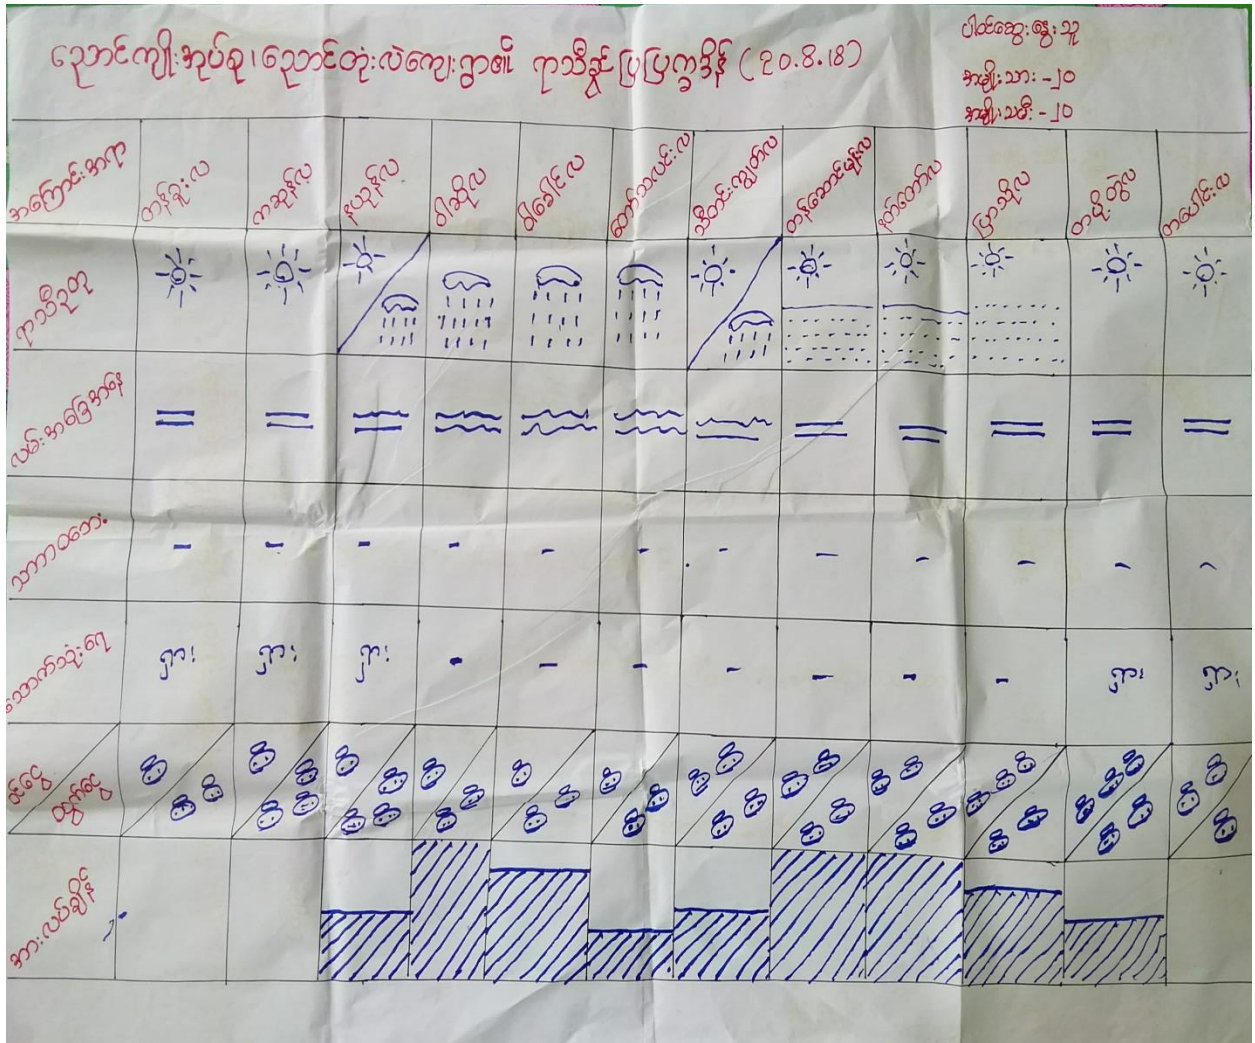 ညောင်ကျိုးအုပ်စု၊ ညောင်တုံးလဲကျေးရွာ၏ ရာသီခွင်ပြပြက္ခဒိန် (၃၀.၆.၁၆)
ပါဝင်ဆွေးနွေးသူ
အမျိုးသား - ၂၀
အမျိုးသမီး - ၂၀
အကြောင်းအရာ တန်ခူးလ ကဆုန်လ နယုန်လ ဝါဆိုလ ဝါခေါင်လ တော်သလင်းလ သီတင်းကျွတ်လ တန်ဆောင်မုန်းလ နတ်တော်လ ပြာသိုလ တပို့တွဲလ တပေါင်းလ
ရာသီဥတု
လမ်းအခြေအနေ
သဘာဝဘေး - - - - - - - - - - - -
သောက်သုံးရေ ရှား ရှား ရှား - - - - - - - ရှား ရှား
ဝင်ငွေ
ထွက်ငွေ
အားလပ်ချိန်